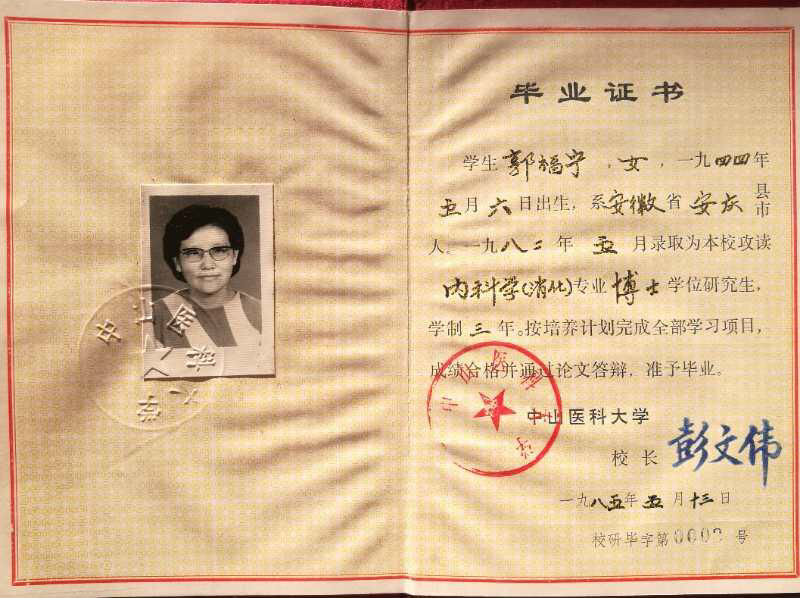 毕业证书
学生郭福宁,女,一九四四年
五月六日出生,系安徽省安庆县市
人。一九八二年五月录取为本校攻读
内科学(消化)专业博士学位研究生,
学制三年。按培养计划完成全部学习项目,
成绩合格并通过论文答辩,准予毕业。
中山医科大学
校长 彭文伟
一九八五年五月十三日
校研毕字第 号
中山医科大学
中山医科大学